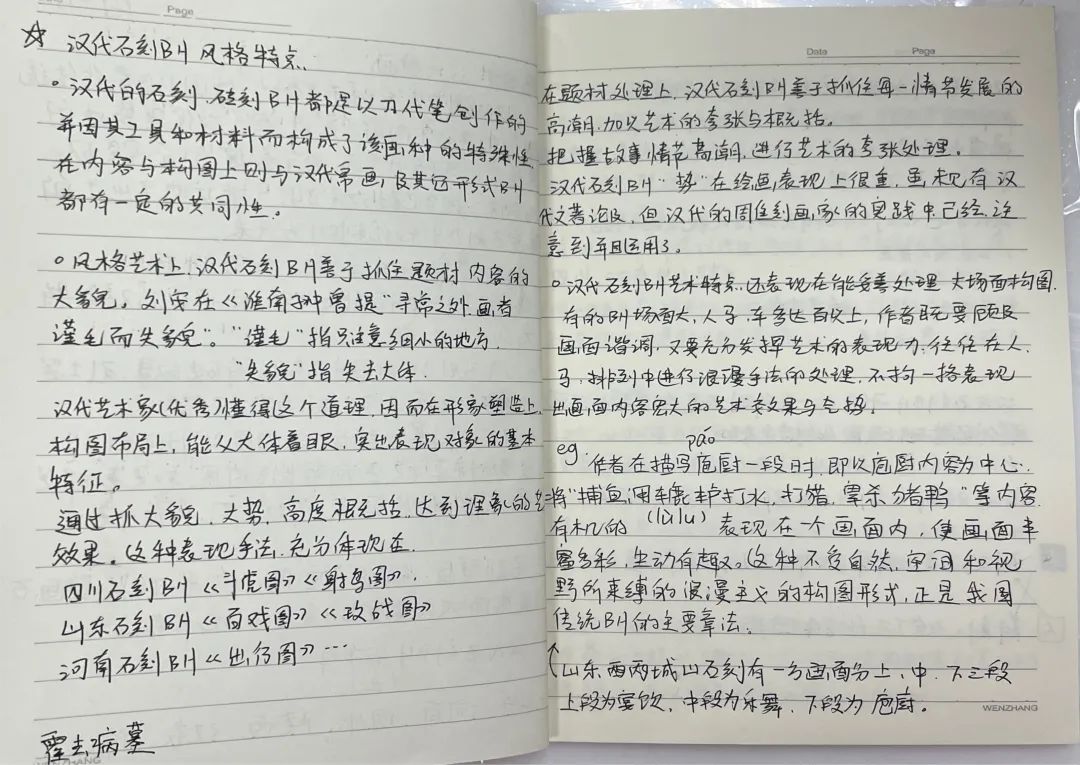 Page
☆ 汉代石刻BH 风格特点.
。汉代的石刻、砖刻BH都是以刀代笔创作的
并因其工具和材料而构成了该画种的特殊性
在内容与构图上则与汉代帛画及其它形式BH
都有一定的共同性。
。风格艺术上,汉代石刻BH善于抓住题材内容的
大貌。刘安在《淮南子
"寻常之外,画者
谨毛而失貌"。"谨毛"指只注意细小的地方.
"失貌"指失去大体.
汉代艺术家(优秀)懂得这个道理,因而在形象塑造上、
构图布局上,能从大体着眼,突出表现对象的基本
特征。
通过抓大貌、大势、高度概括、达到理象的艺
效果。这种表现手法,充分体现在.
四川石刻BH《斗虎图》《射鸟图》.
山东石刻BH《百戏图》《攻战图》
河南石刻BH《出行图》…
霍去病墓
WENZHANG
Data Page
在题材处理上,汉代石刻BH善于抓住每一情节发展的
高潮,加以艺术的夸张与概括。
把握故事情节高潮,进行艺术的夸张处理。
汉代石刻BH"势"在绘画表现上很重,虽未见有汉
代文著论及,但汉代的
画家的实践中已经注
意到并且运用了。
。汉代石刻BH艺术特点,还表现在能妥善处理大场面构图.
有的BH场面大,人马、车多达百以上,作者既要顾及
画面谐调,又要充分发挥艺术的表现力,往往在人、
马、排列中进行浪漫手法的处理,不拘一格表现
出画面内容宏大的艺术效果与气势.
páo
eg.作者在描写庖厨一段时,即以庖厨内容为中心.
将"捕鱼、用辘轳打水,打猎,宰杀猪鸭"等内容
有机的 (lùlu) 表现在一个画面内,使画面丰
富多彩,生动有趣。这种不受自然,空间和视
野所束缚的浪漫主义的构图形式,正是我国
传统BH的主要章法.
↑山东西两城山石刻有一方画面分上、中、下三段
上段为宴饮,中段为乐舞、下段为庖厨。
WENZHANG